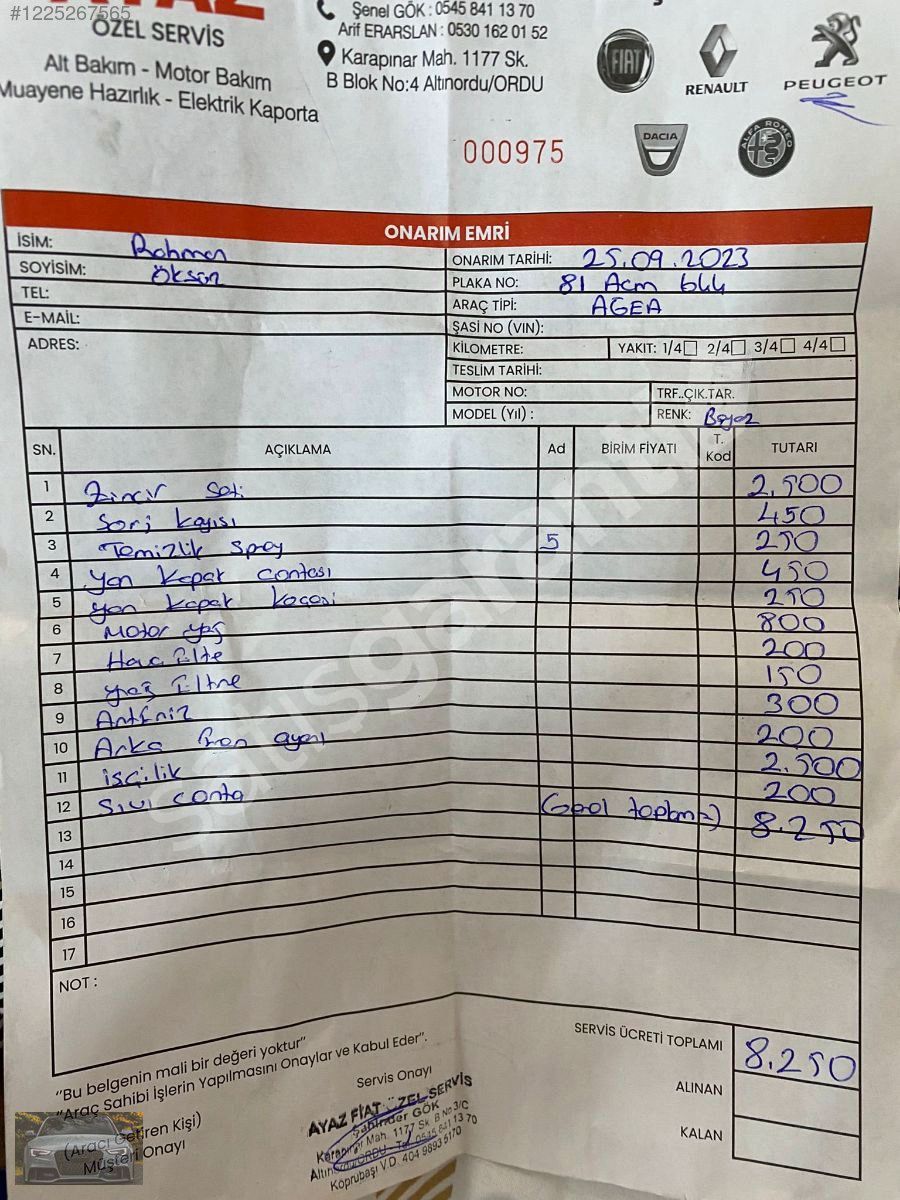 #1225267565
AYAZ
ÖZEL SERVİS
Alt Bakım - Motor Bakım
Muayene Hazırlık - Elektrik Kaporta
Şenel GÖK : 0545 841 13 70
Arif ERARSLAN : 0530 162 01 52
Karapınar Mah. 1177 Sk.
B Blok No:4 Altınordu/ORDU
FIAT
RENAULT
PEUGEOT
DACIA
ALFA ROMEO
000975
ONARIM EMRİ
İSİM: Rahman
SOYİSİM: Öksüz
TEL:
E-MAİL:
ADRES:
ONARIM TARİHİ: 25.09.2023
PLAKA NO: 81 Acm 644
ARAÇ TİPİ: AGEA
ŞASİ NO (VIN):
KİLOMETRE: YAKIT: 1/4 2/4 3/4 4/4
TESLİM TARİHİ:
MOTOR NO: TRF..ÇIK.TAR.
MODEL (Yıl) : RENK: Beyaz
SN. AÇIKLAMA Ad BİRİM FİYATI T. Kod TUTARI
1 Zincir Seti 2.500
2 Sarj kayısı 450
3 Temizlik Spray 5 250
4 yan kapak contası 450
5 yan kapak keçesi 250
6 Motor yağ 800
7 Hava filte 200
8 yağ filtre 150
9 Antfriz 300
10 Arka fren ayarı 200
11 işçilik 2.500
12 Sıvı conta 200
13 8.250
14
15
16
17
NOT :
SERVİS ÜCRETİ TOPLAMI 8.250
ALINAN
KALAN
"Bu belgenin mali bir değeri yoktur"
"Araç Sahibi İşlerin Yapılmasını Onaylar ve Kabul Eder".
(Aracı Getiren Kişi)
Müşteri Onayı
Servis Onayı
AYAZ FİAT ÖZEL SERVİS
Şahinder GÖK
Karapınar Mah. 1177 Sk. B No 3/C
Altınordu/ORDU - Tel: 0545 841 13 70
Köprübaşı V.D. 404 989 5170
satışgaranti